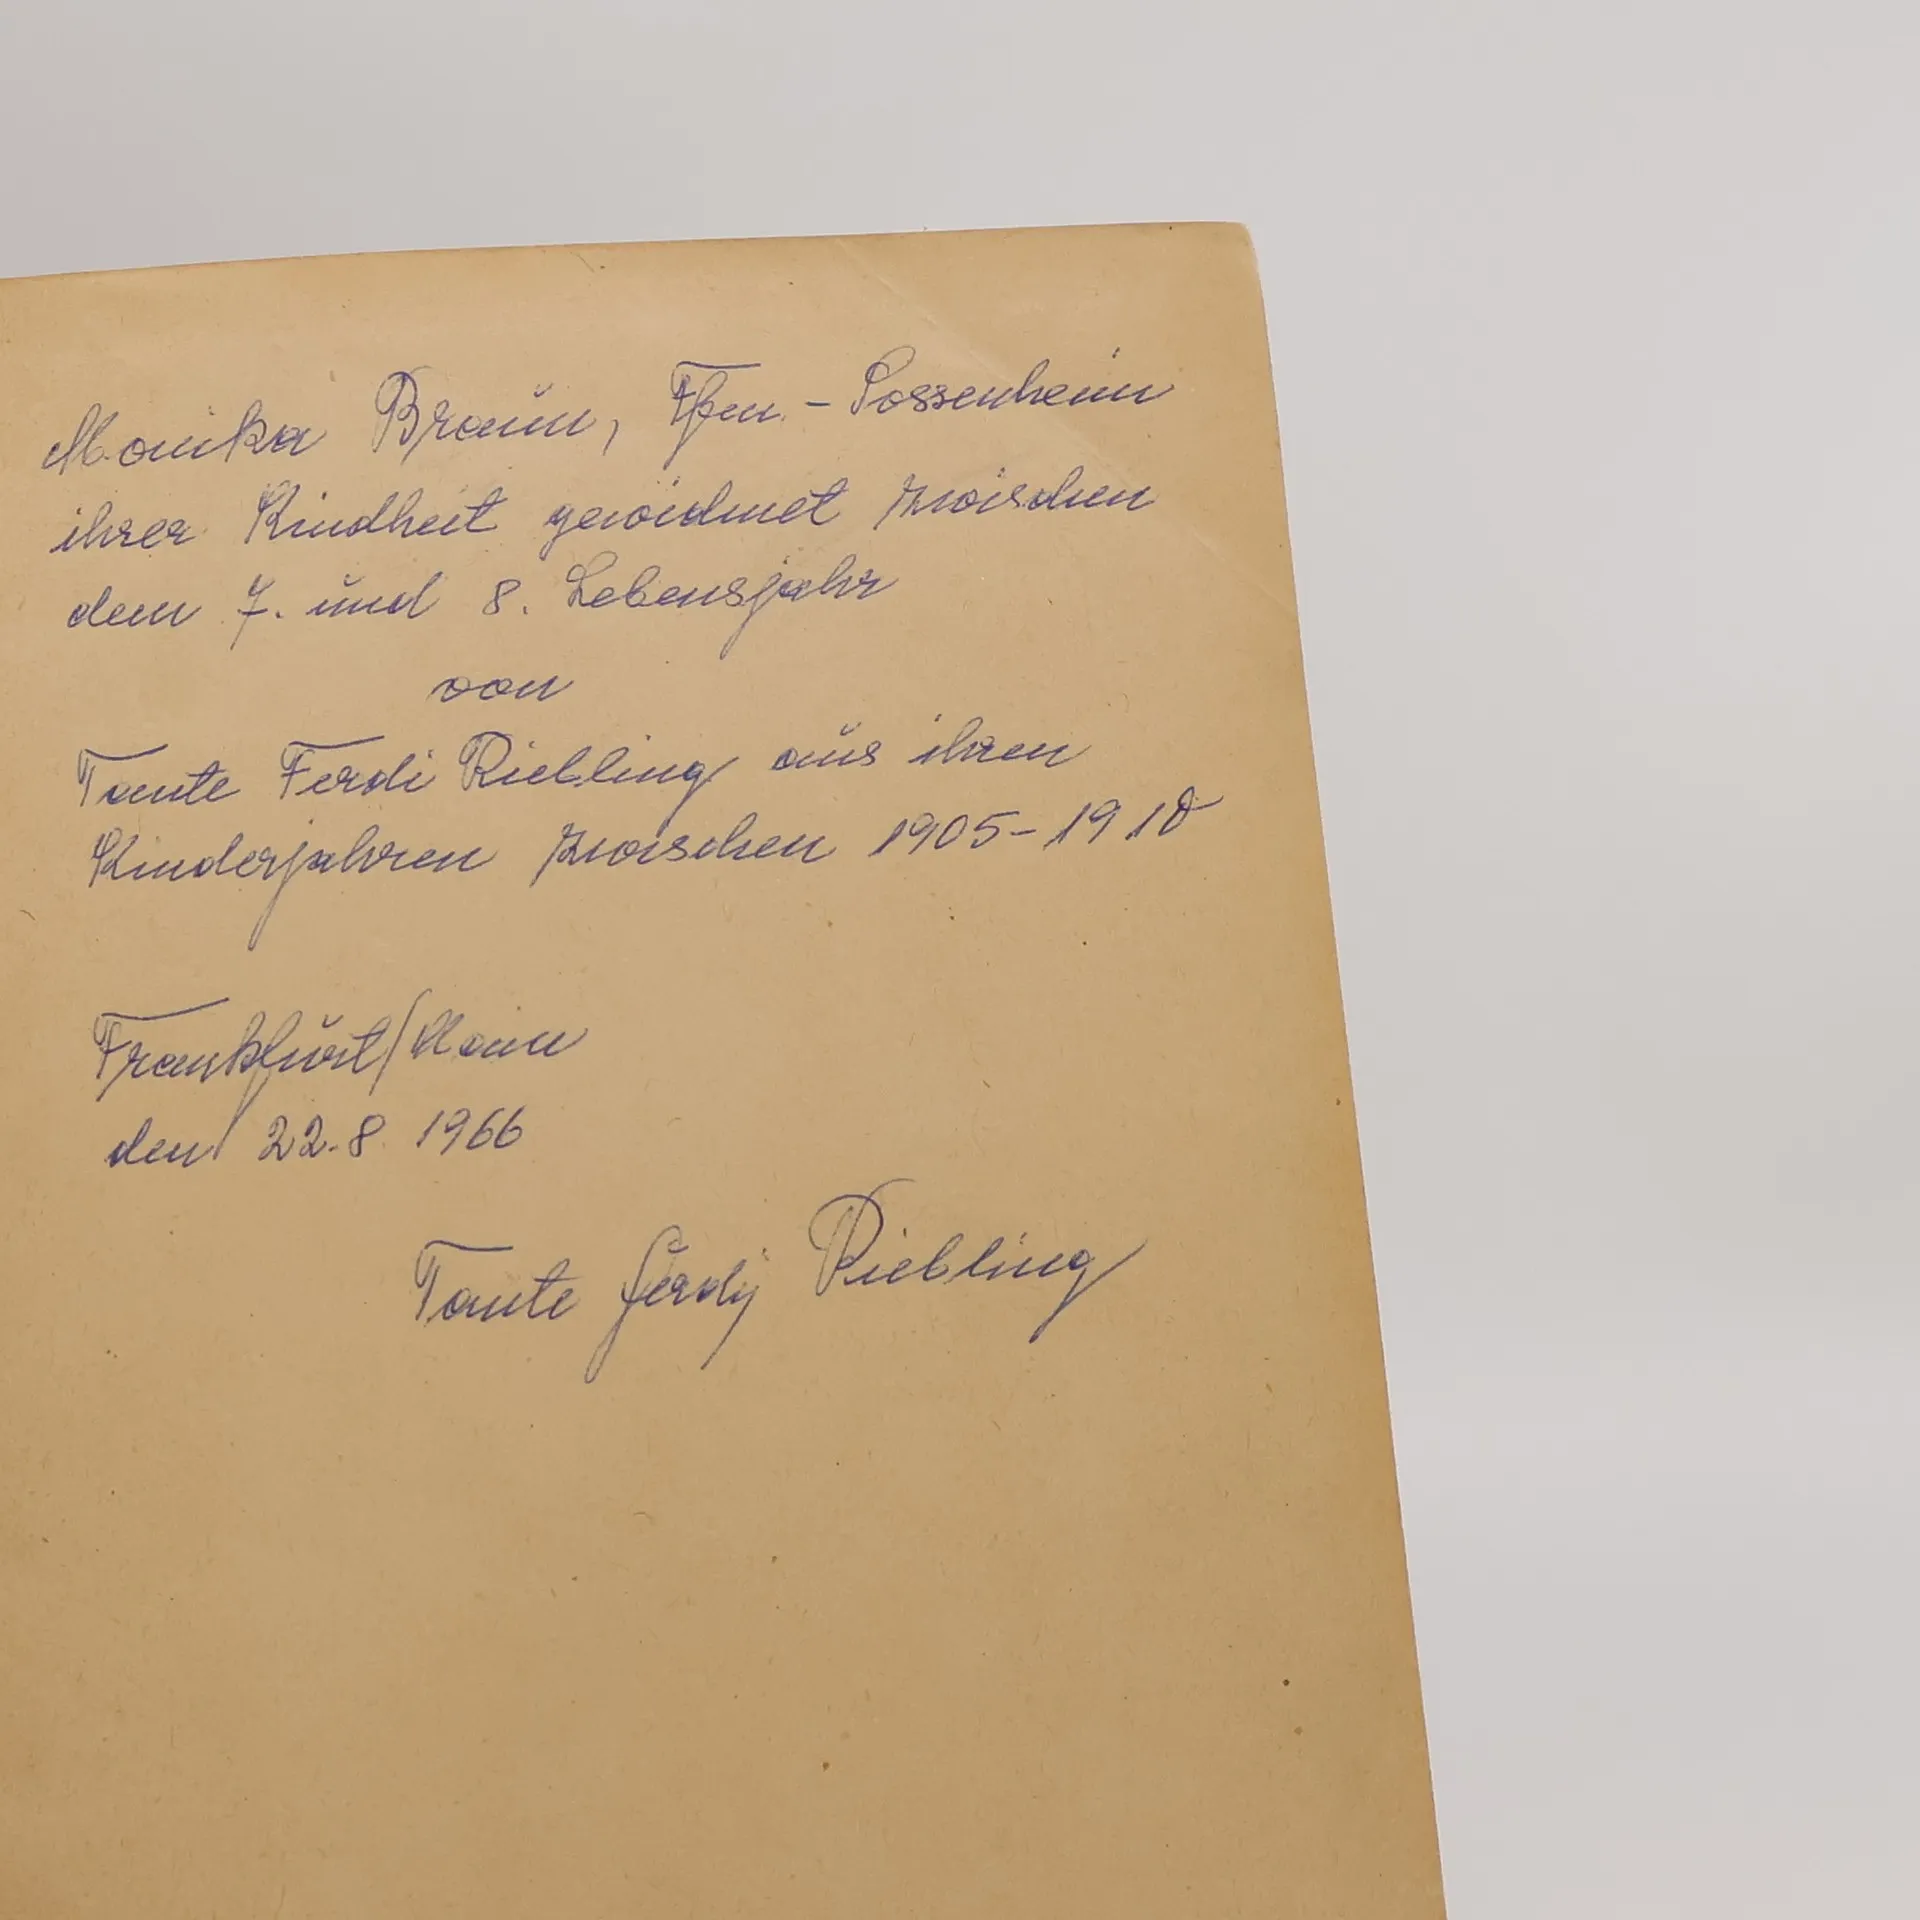 Monika Braun, Ffm. - Sossenheim
ihrer Kindheit gewidmet zwischen
dem 7. und 8. Lebensjahr
von
Tante Ferdi Riebling aus ihren
Kinderjahren zwischen 1905-1910
Frankfurt/Main
den 22.8 1966
Tante Ferdy Riebling